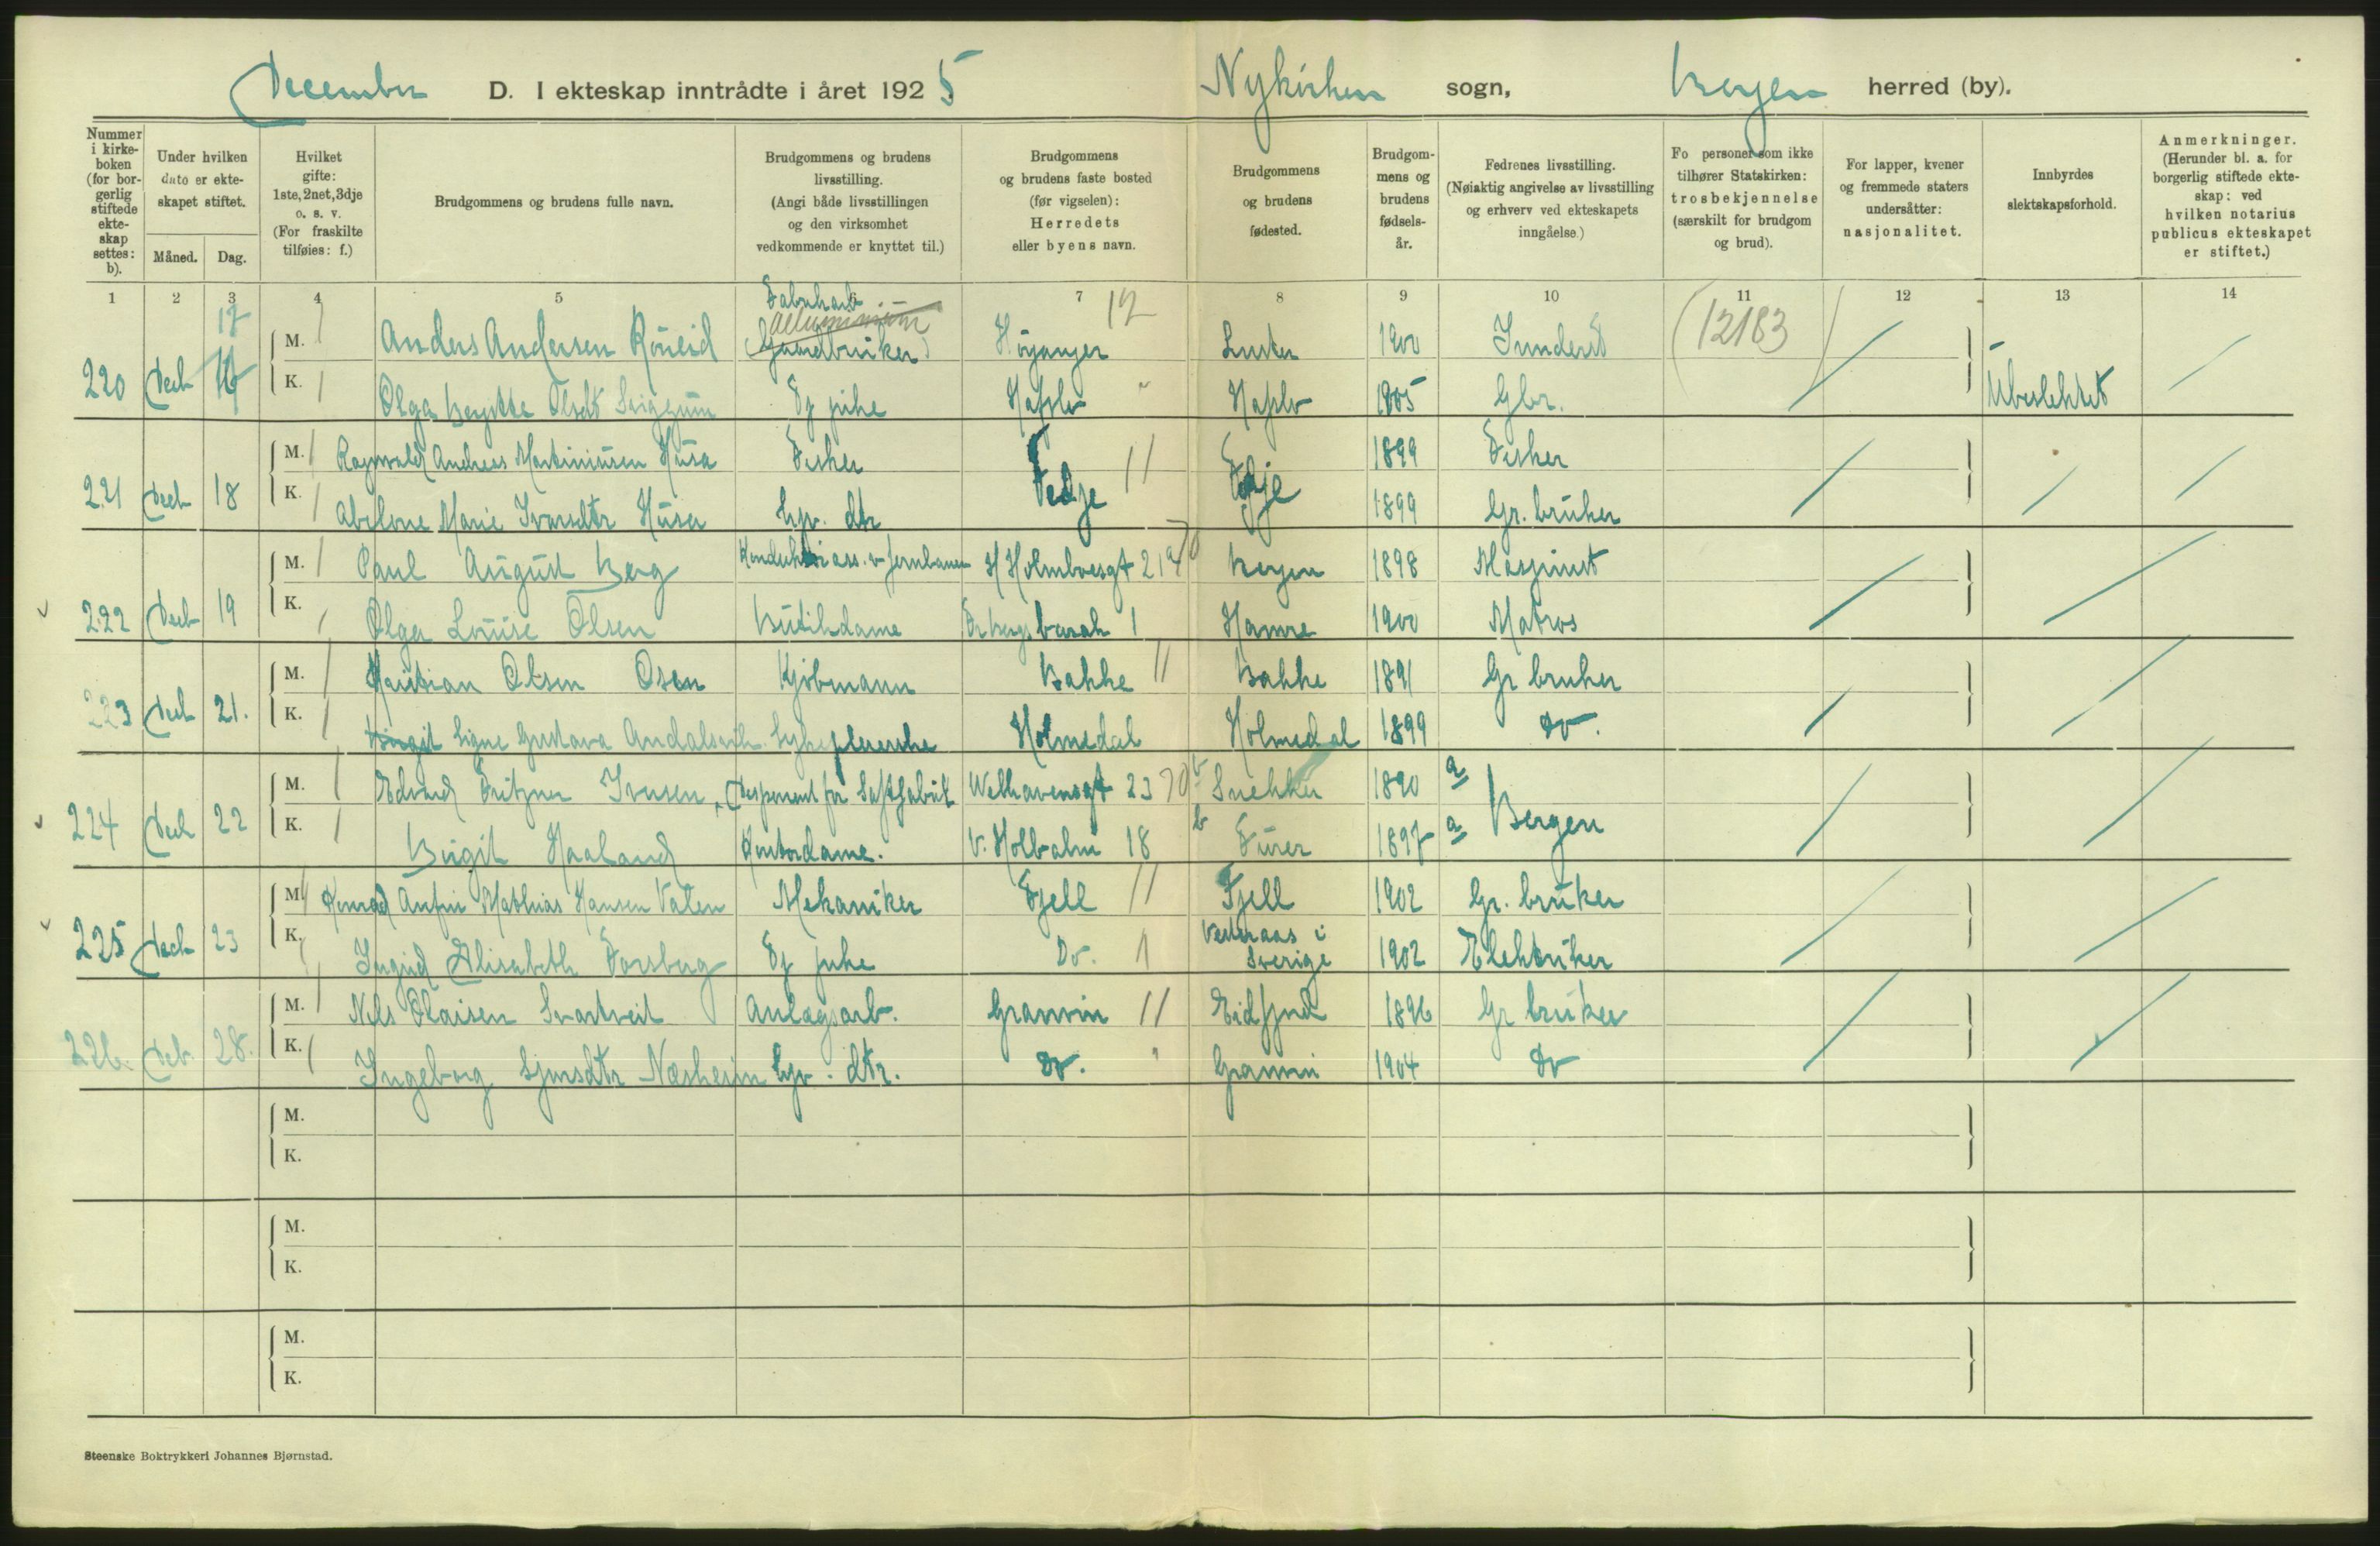 December D. I ekteskap inntrådte i året 1925 Nykirken sogn, Bergen herred (by).
Nummer i kirkeboken (for borgerlig stiftede ekteskap settes: b).
Under hvilken dato er ekteskapet stiftet.
Måned. Dag.
Hvilket gifte: 1ste, 2net, 3dje o. s. v. (For fraskilte tilføies: f.)
Brudgommens og brudens fulle navn.
Brudgommens og brudens livsstilling. (Angi både livsstillingen og den virksomhet vedkommende er knyttet til.)
Brudgommens og brudens faste bosted (før vigselen): Herredets eller byens navn.
Brudgommens og brudens fødested.
Brudgommens og brudens fødselsår.
Fedrenes livsstilling. (Nøiaktig angivelse av livsstilling og erhverv ved ekteskapets inngåelse.)
Fo personer som ikke tilhører Statskirken: trosbekjennelse (særskilt for brudgom og brud).
For lapper, kvener og fremmede staters undersåtter: nasjonalitet.
Innbyrdes slektskapsforhold.
Anmerkninger. (Herunder bl. a. for borgerlig stiftede ekteskap: ved hvilken notarius publicus ekteskapet er stiftet.)
1 2 3 4 5 6 7 8 9 10 11 12 13 14
17 Fabrikarb 12 (12183)
M. / Anders Andersen Röneid (Gaardbruker) Höyanger Luster 1900
220 Decb K. / Olga Olsdt Hafslo Hafslo 1905 Gbr. Ubeslektet
M. / Ragnvald Andreas Martiniusen Husa Fisker 11 1899 Fisker
221 Decb 18 K. / Abelone Marie Ivarsdtr Husa hjv. dtr Fedje Fedje 1899 Gr. bruker
M. / Paul August Berg v Jernbanen H Holmboesgt 21 Bergen 1898 Maskinist
222 Decb 19 K. / Olga Louise Olsen Butikdame 1 Hamre 1900 Matros
M. / Kristian Olsen Osen Kjöbmann Bakke 11 Bakke 1891 Gr bruker
223 Decb 21. K. / Birgit Signe Gustava Andalsvik Sykepleierske Holmedal Holmedal 1899 do.
M. / Edvard Fritzner Iversen, Disponent for Saftfabrik Welhavensgt 23 1890 a
224 Decb 22 K. / Birgit Haaland Kontordame. V. Holbalm 18 b 1897 a Bergen
M. / Konrad Anfin Mathias Hansen Valen Mekaniker Fjell 11 Fjell 1902 Gr. bruker
225 Decb 23 K. / Ingrid Elisabeth Forsberg Do. 1 Vesteraas i Sverige 1902 Elektriker
M. / Nils Olaisen Svartveit Anlægsarb. Granvin 11 Eidfjord 1896 Gr bruker
226. Decb. 28. K. / Ingeborg Sjursdtr Næsheim hjv. dtr. do. Granvin 1904 do
M.
K.
M.
K.
M.
K.
Steenske Boktrykkeri Johannes Bjørnstad.